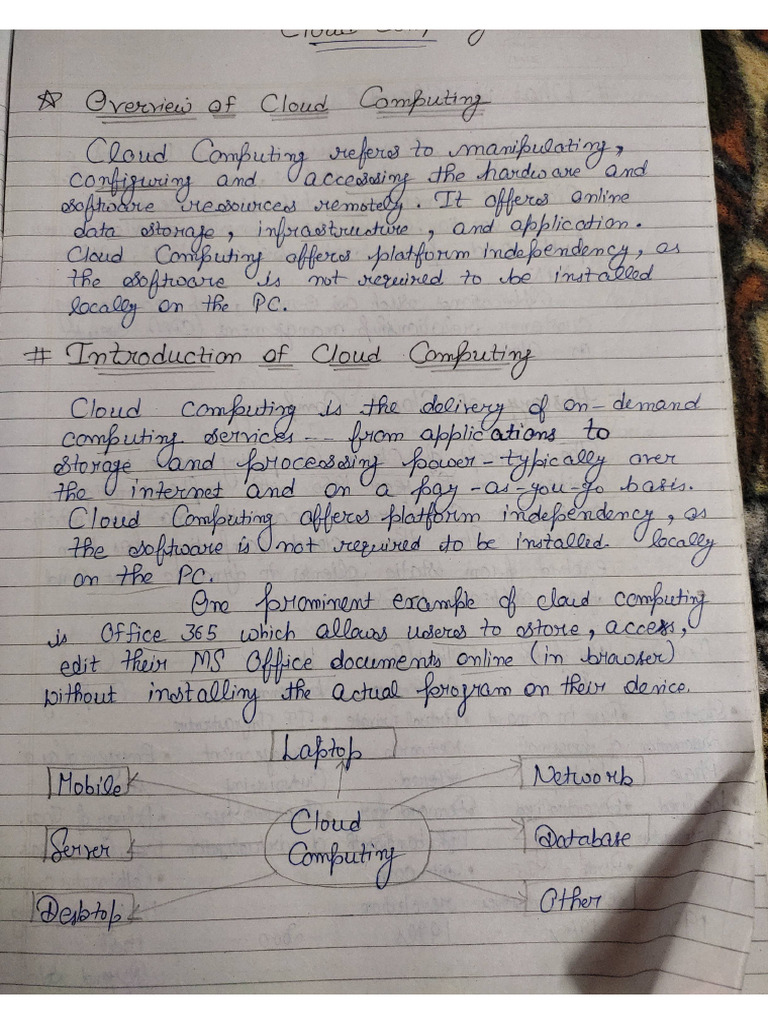 Cloud Computing
☆ Overview of Cloud Computing
Cloud Computing refers to manipulating,
configuring and accessing the hardware and
software resources remotely. It offers online
data storage, infrastructure, and application.
Cloud Computing offers platform independency, as
the software is not required to be installed
locally on the PC.
# Introduction of Cloud Computing
Cloud computing is the delivery of on-demand
computing services -- from applications to
storage and processing power - typically over
the internet and on a pay-as-you-go basis.
Cloud Computing offers platform independency, as
the software is not required to be installed locally
on the PC.
One prominent example of cloud computing
is Office 365 which allows users to store, access,
edit their MS Office documents online (in browser)
without installing the actual program on their device.
Laptop
Mobile
Network
Cloud
Computing
Server
Database
Desktop
Other